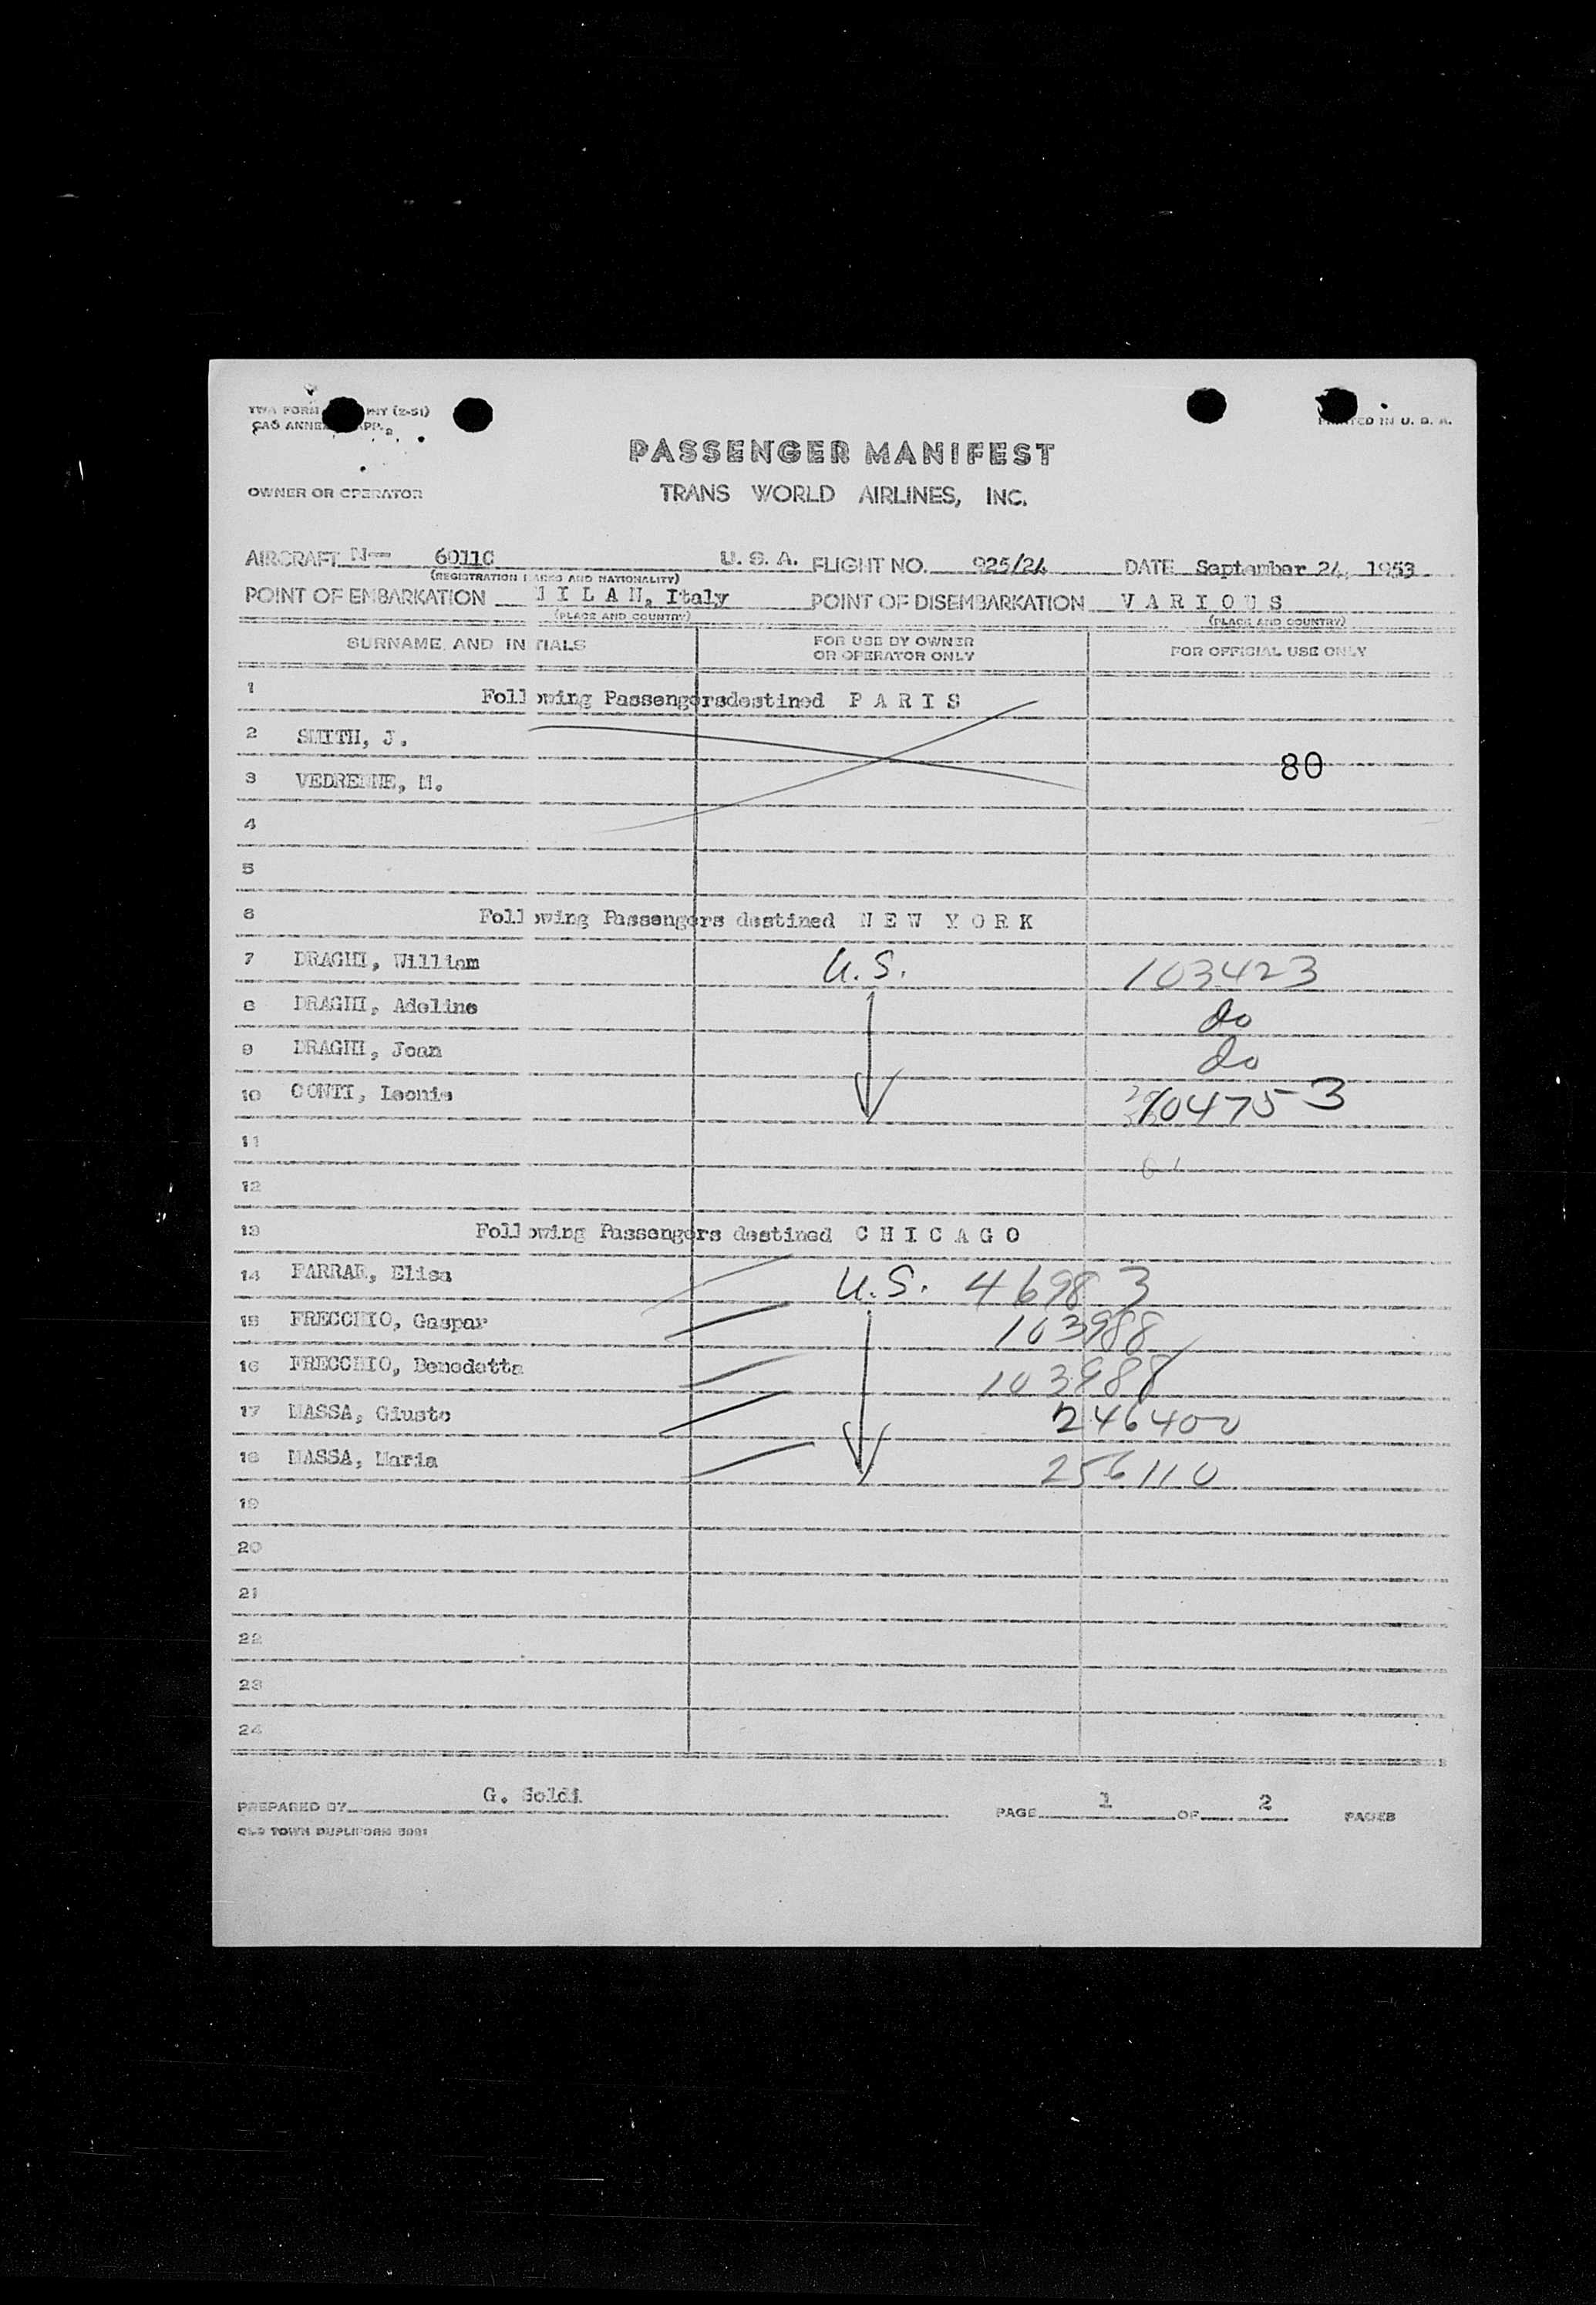 TWA FORM (2-51)
OWNER OR OPERATOR
PRINTED IN U. S. A.
PASSENGER MANIFEST
TRANS WORLD AIRLINES, INC.
AIRCRAFT N— 6011C U. S. A. FLIGHT NO. 925/24 DATE September 24, 1953
(REGISTRATION MARKS AND NATIONALITY)
POINT OF EMBARKATION MILAN, Italy POINT OF DISEMBARKATION VARIOUS
(PLACE AND COUNTRY) (PLACE AND COUNTRY)
SURNAME AND INITIALS FOR USE BY OWNER OR OPERATOR ONLY FOR OFFICIAL USE ONLY
1 Following Passengersdestined PARIS
2 SMITH, J.
80
3 VEDRENNE, M.
4
5
6 Following Passengers destined NEW YORK
7 DRAGHI, William U.S. 103423
8 DRAGHI, Adeline do
9 DRAGHI, Joan do
10 CONTI, Leonie 104753
11
12
13 Following Passengers destined CHICAGO
14 Elisa U.S. 46983
15 FRECCHIO, Gaspar 103988
16 FRECCHIO, Benedetta 103988
17 MASSA, Giusto 246400
18 MASSA, Maria 256110
19
20
21
22
23
24
PREPARED BY G. Soldi PAGE 1 OF 2 PAGES
OLD TOWN DUPLIFORM